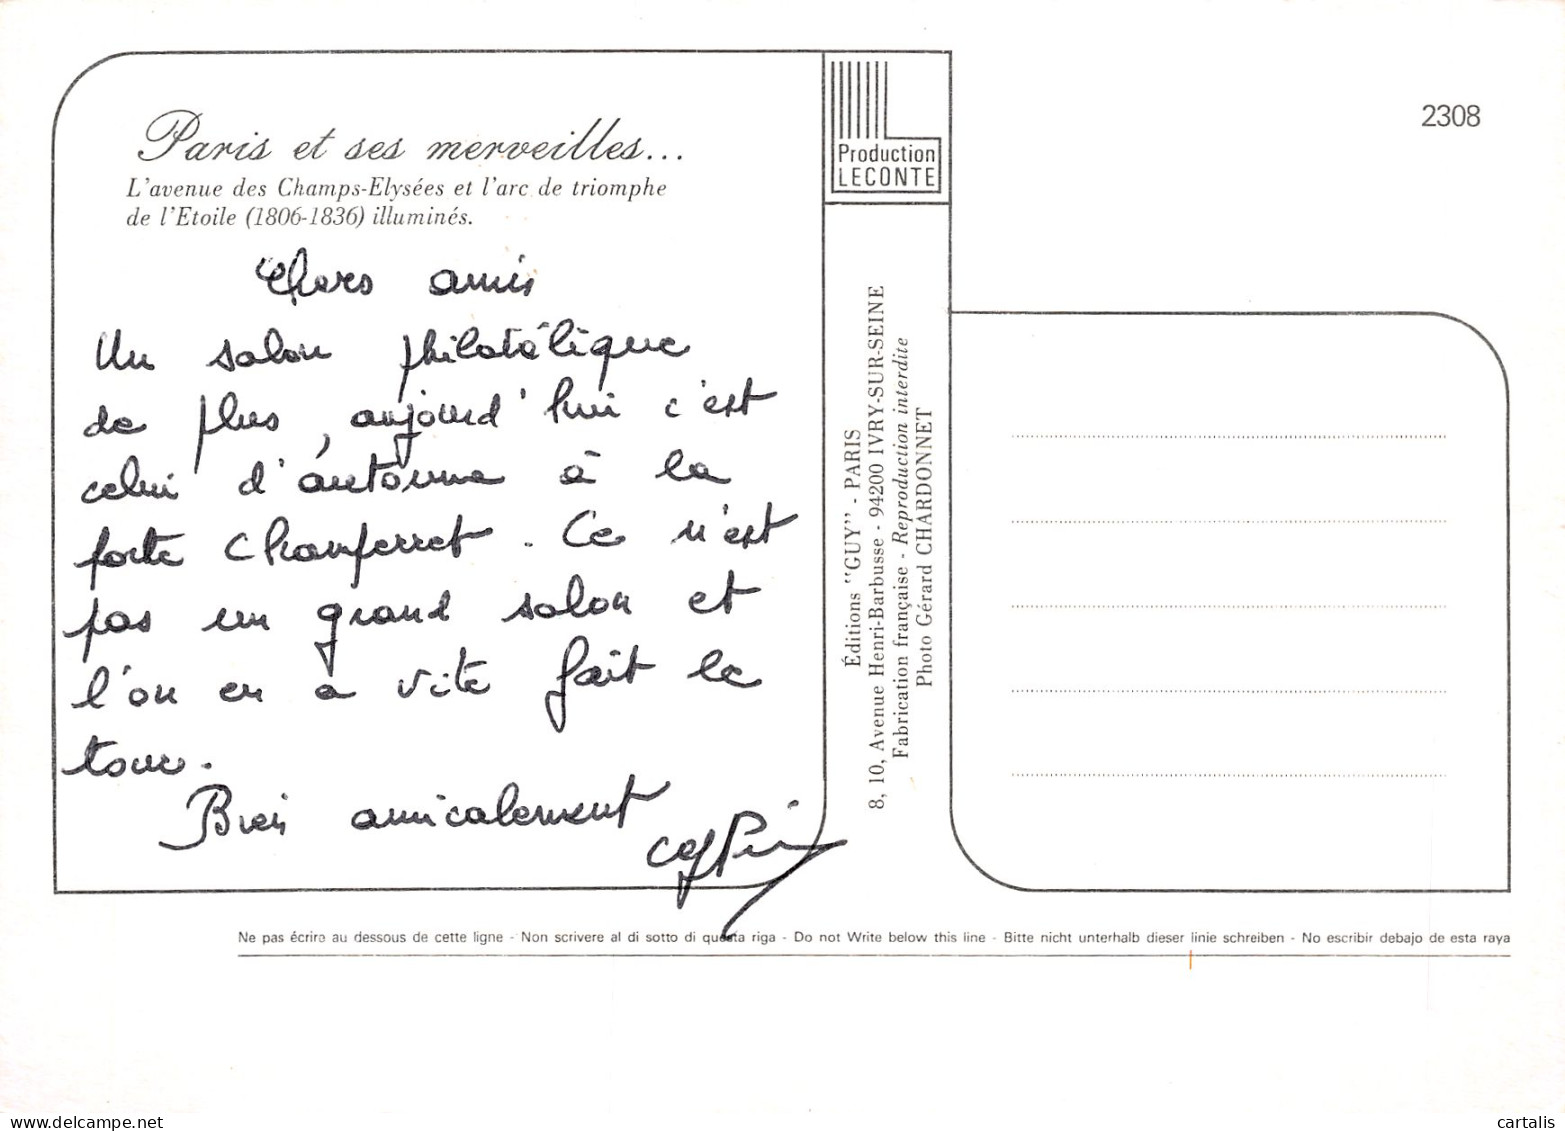 Paris et ses merveilles...
L'avenue des Champs-Elysées et l'arc de triomphe
de l'Etoile (1806-1836) illuminés.
Chers amis
Un salon philatélique
de plus, aujourd'hui c'est
celui d'automne à la
porte Champerret. Ce n'est
pas un grand salon et
l'on en a vite fait le
tour.
Bien amicalement
Production
LECONTE
Éditions "GUY" - PARIS
8, 10, Avenue Henri-Barbusse - 94200 IVRY-SUR-SEINE
Fabrication française - Reproduction interdite
Photo Gérard CHARDONNET
2308
Ne pas écrire au dessous de cette ligne - Non scrivere al di sotto di questa riga - Do not Write below this line - Bitte nicht unterhalb dieser linie schreiben - No escribir debajo de esta raya
delcampe.net
cartalis